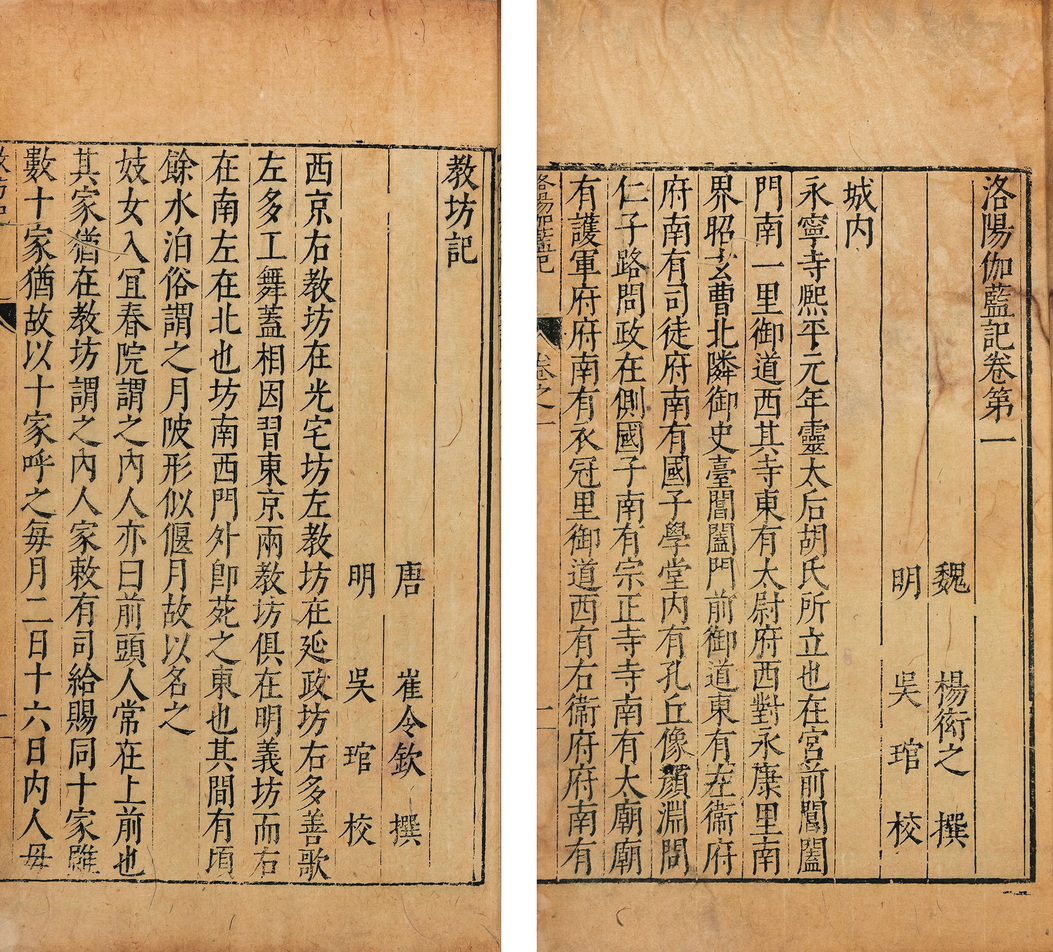 洛陽伽藍記卷第一
魏 楊衒之 撰
明 吳琯 校
城内
永寧寺熈平元年靈太后胡氏所立也在宮前閶闔
門南一里御道西其寺東有太尉府西對永康里南
界昭玄曹北隣御史臺閶闔門前御道東有左衞府
府南有司徒府府南有國子學堂内有孔丘像顔淵問
仁子路問政在側國子南有宗正寺寺南有太廟廟
有護軍府府南有衣冠里御道西有右衞府府南有
洛陽伽藍記
卷之一
一
教坊記
唐 崔令欽 撰
明 吳琯 校
西京右教坊在光宅坊左教坊在延政坊右多善歌
左多工舞蓋相因習東京兩教坊俱在明義坊而右
在南左在北也坊南西門外卽苑之東也其間有頃
餘水泊俗謂之月陂形似偃月故以名之
妓女入宜春院謂之內人亦曰前頭人常在上前也
其家猶在教坊謂之內人家敕有司給賜同十家雖
數十家猶故以十家呼之每月二日十六日内人母
教坊記
一